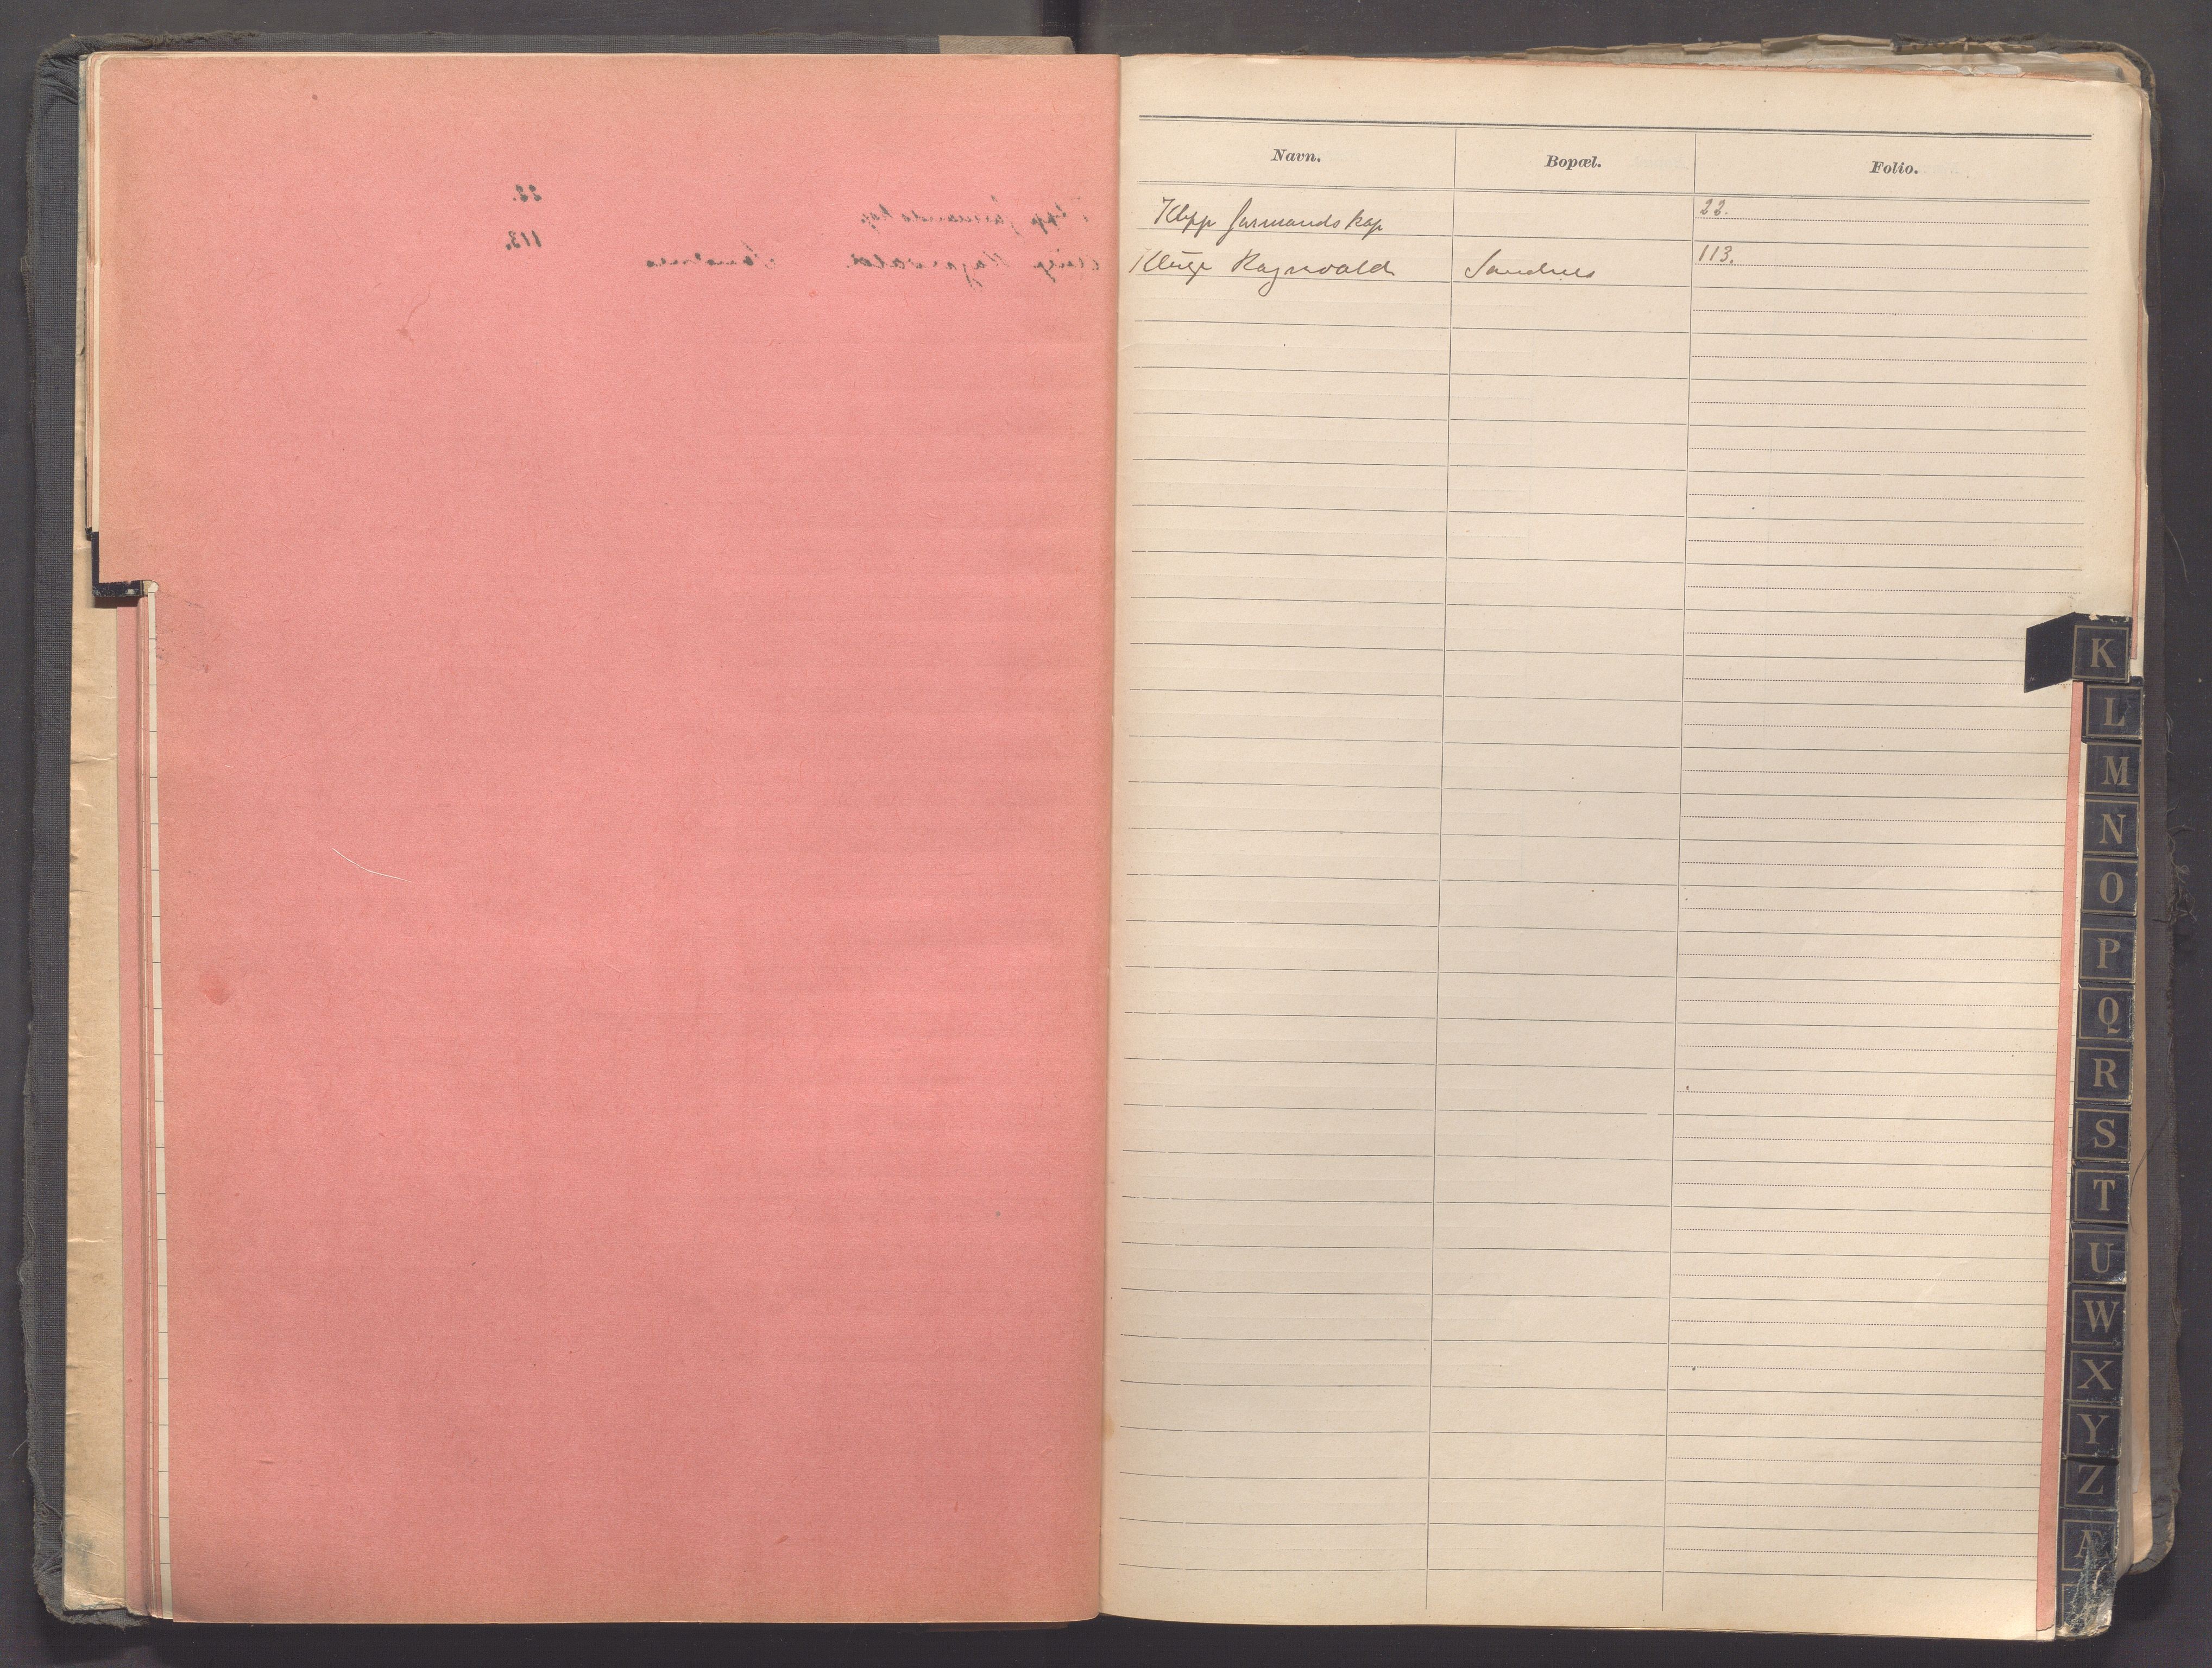 Navn. Bopæl. Folio.
Klepp formandskap 22.
Kluge Ragnvald Sandnes 113.
K
L
M
N
O
P
Q
R
S
T
U
W
X
Y
Z